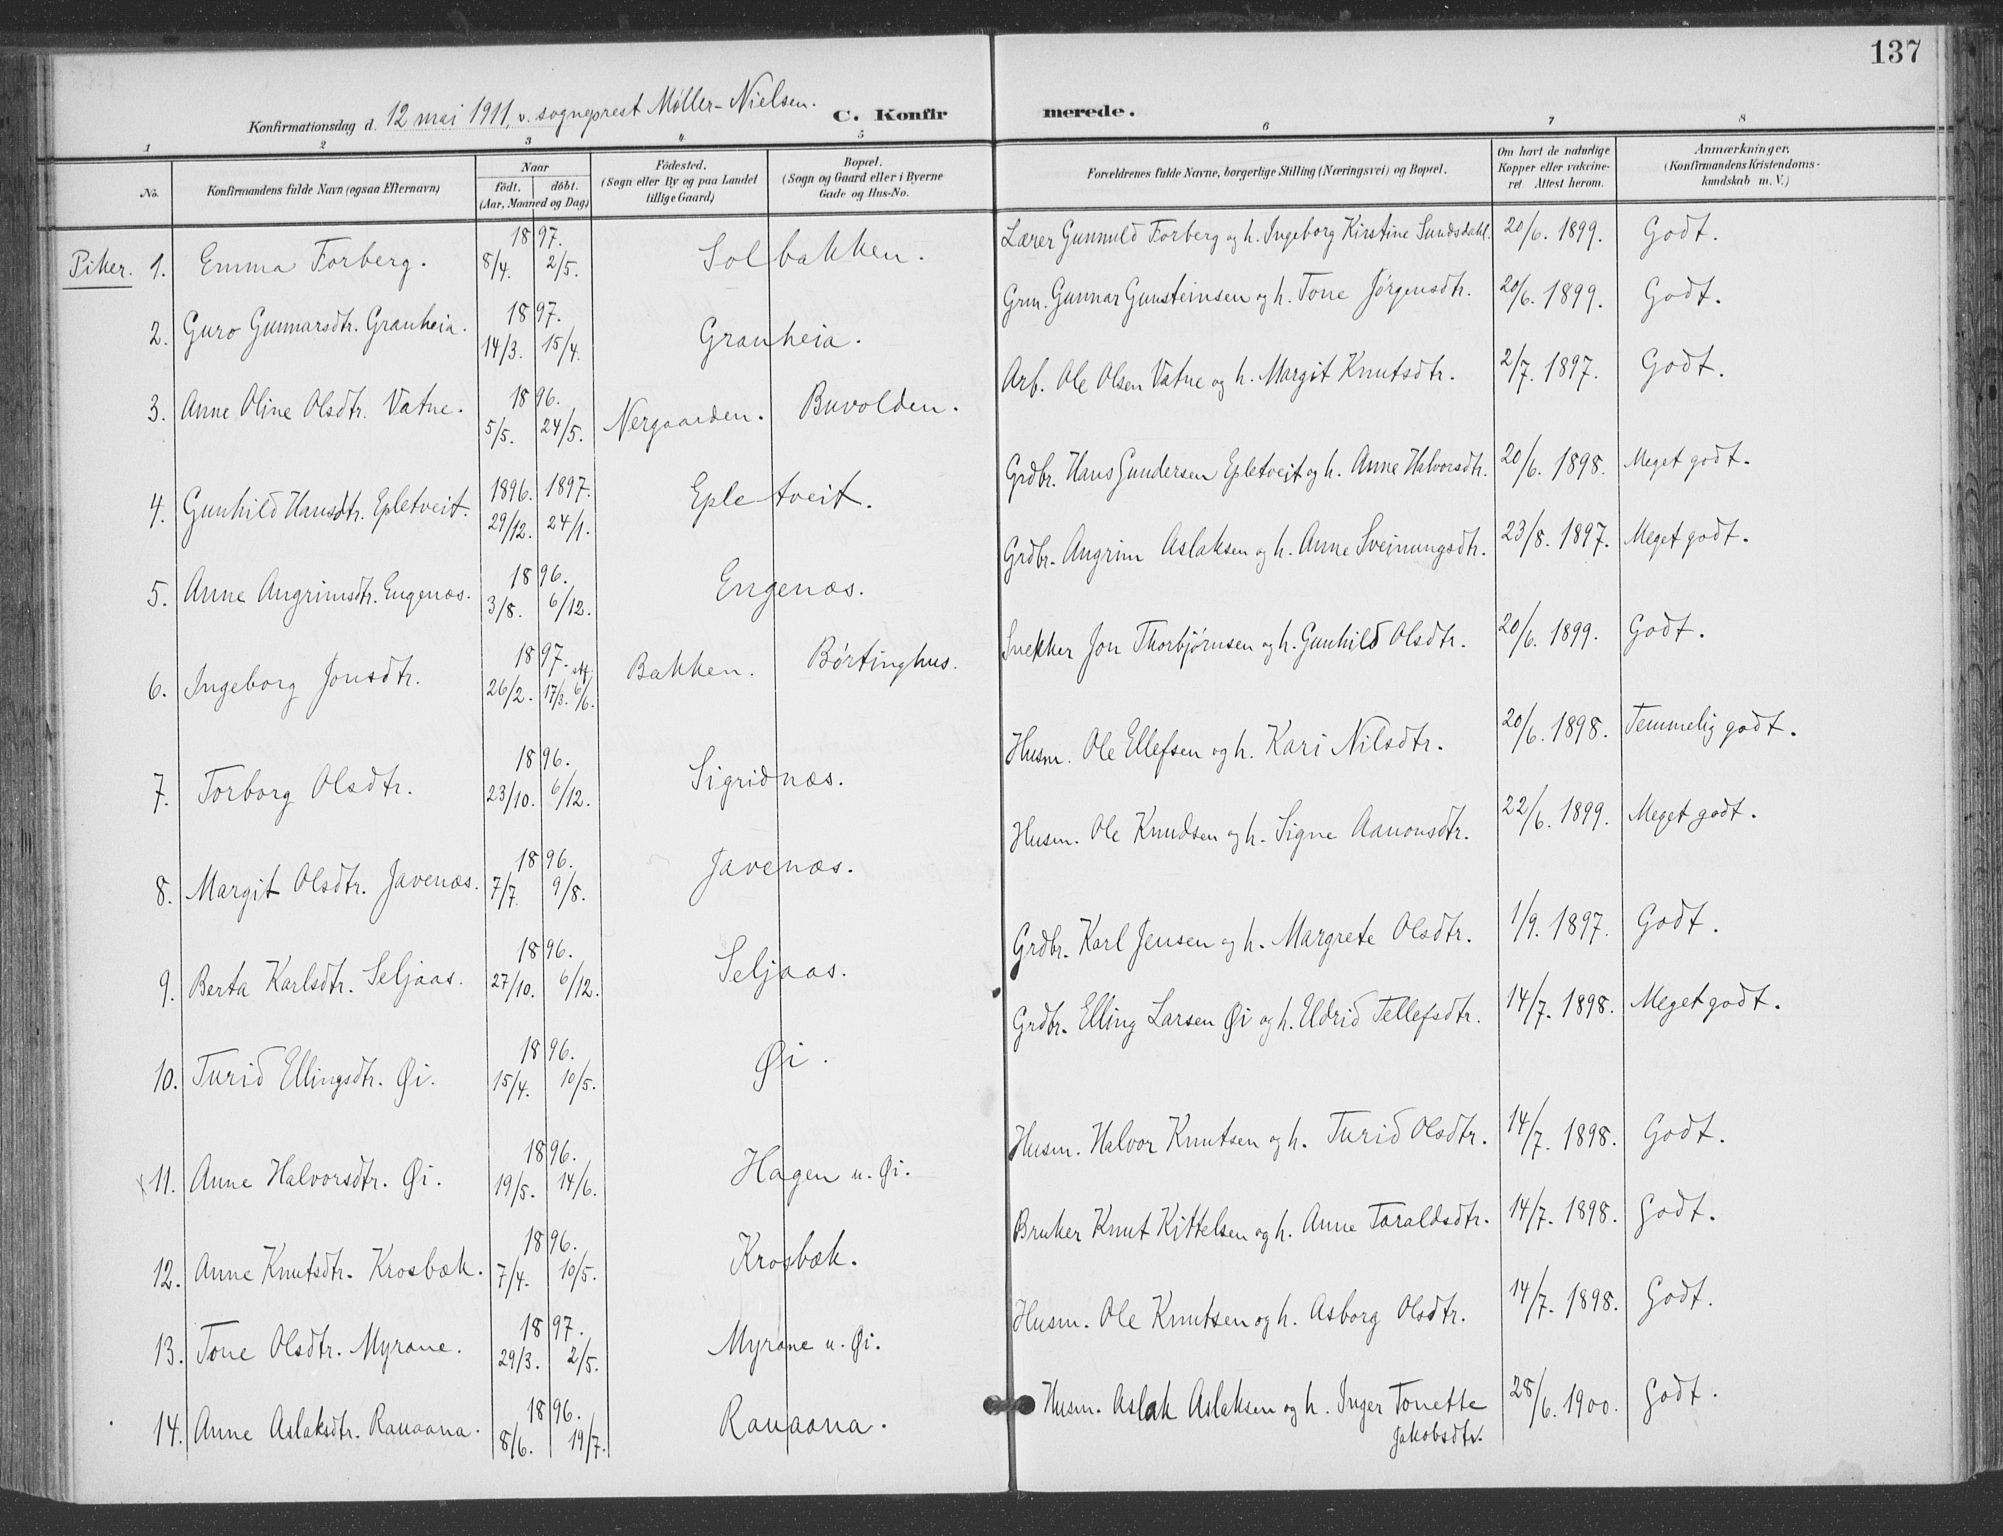 137
Konfirmationsdag d. 12 mai 1911, v. sogneprest Møller-Nielsen. C. Konfir merede.
1 2 3 4 5 6 7 8
No. Konfirmandens fulde Navn (ogsaa Efternavn) Naar født. døbt. (Aar, Maaned og Dag) Fødested. (Sogn eller By og paa Landet tillige Gaard) Bopæl. (Sogn og Gaard eller i Byerne Gade og Hus-No. Forældrenes fulde Navne, borgerlige Stilling (Næringsvei) og Bopæl. Om havt de naturlige Kopper eller vakcineret. Attest herom. Anmærkninger. (Konfirmandens Kristendomskundskab m. V.)
Piker. 1. Emma Forberg. 1897. 8/4. 2/5. Solbakken. Lærer Gunnuld Forberg og h. Ingeborg Kirstine Sundsdahl. 20/6. 1899. Godt.
2. Guro Gunnarsdtr. Granheia. 1897. 14/3. 15/4. Granheia. Grm. Gunnar Gunsteinsen og h. Tone Jørgensdtr. 20/6. 1899. Godt.
3. Anne Oline Olsdtr. Vatne. 1896. 5/5. 24/5. Nergaarden. Buvolden. Arb. Ole Olsen Vatne og h. Margit Knutsdtr. 2/7. 1897. Godt.
4. Gunhild Hansdtr. Epletveit. 1896. 29/12. 1897. 24/1. Epletveit. Grdbr. Hans Gundersen Epletveit og h. Anne Halvorsdtr. 20/6. 1898. Meget godt.
5. Anne Angrimsdtr. Engenæs. 1896. 3/8. 6/12. Engenæs. Grdbr. Angrim Aslaksen og h. Anne Sveinungsdtr. 23/8. 1897. Meget godt.
6. Ingeborg Jonsdtr. 1897. 26/2. 17/3. 6/6. Bakken. Børtinghus. Snekker Jon Thorbjørnsen og h. Gunhild Olsdtr. 20/6. 1899. Godt.
7. Torborg Olsdtr. 1896. 23/10. 6/12. Sigridnæs. Husm. Ole Ellefsen og h. Kari Nilsdtr. 20/6. 1898. Temmelig godt.
8. Margit Olsdtr. Javenæs. 1896. 7/7. 9/8. Javenæs. Husm. Ole Knudsen og h. Signe Aanonsdtr. 22/6. 1899. Meget godt.
9. Berta Karlsdtr. Seljaas. 1896. 27/10. 6/12. Seljaas. Grdbr. Karl Jensen og h. Margrete Olsdtr. 1/9. 1897. Godt.
10. Turid Ellingsdtr. Øi. 1896. 15/4. 10/5. Øi. Grdbr. Elling Larsen Øi og h. Eldrid Tellefsdtr. 14/7. 1898. Meget godt.
11. Anne Halvorsdtr. Øi. 1896. 19/5. 14/6. Hagen u. Øi. Husm. Halvor Knutsen og h. Turid Olsdtr. 14/7. 1898. Godt.
12. Anne Knutsdtr. Krosbæk. 1896. 7/4. 10/5. Krosbæk. Bruker Knut Kittelsen og h. Anne Taraldsdtr. 14/7. 1898. Godt.
13. Tone Olsdtr. Myrane. 1897. 29/3. 2/5. Myrane u. Øi. Husm. Ole Knutsen og h. Asborg Olsdtr. 14/7. 1898. Godt.
14. Anne Aslaksdtr. Rauaana. 1896. 8/6. 19/7. Rauaana. Husm. Aslak Aslaksen og h. Inger Tonette Jakobsdtr. 28/6. 1900. Godt.